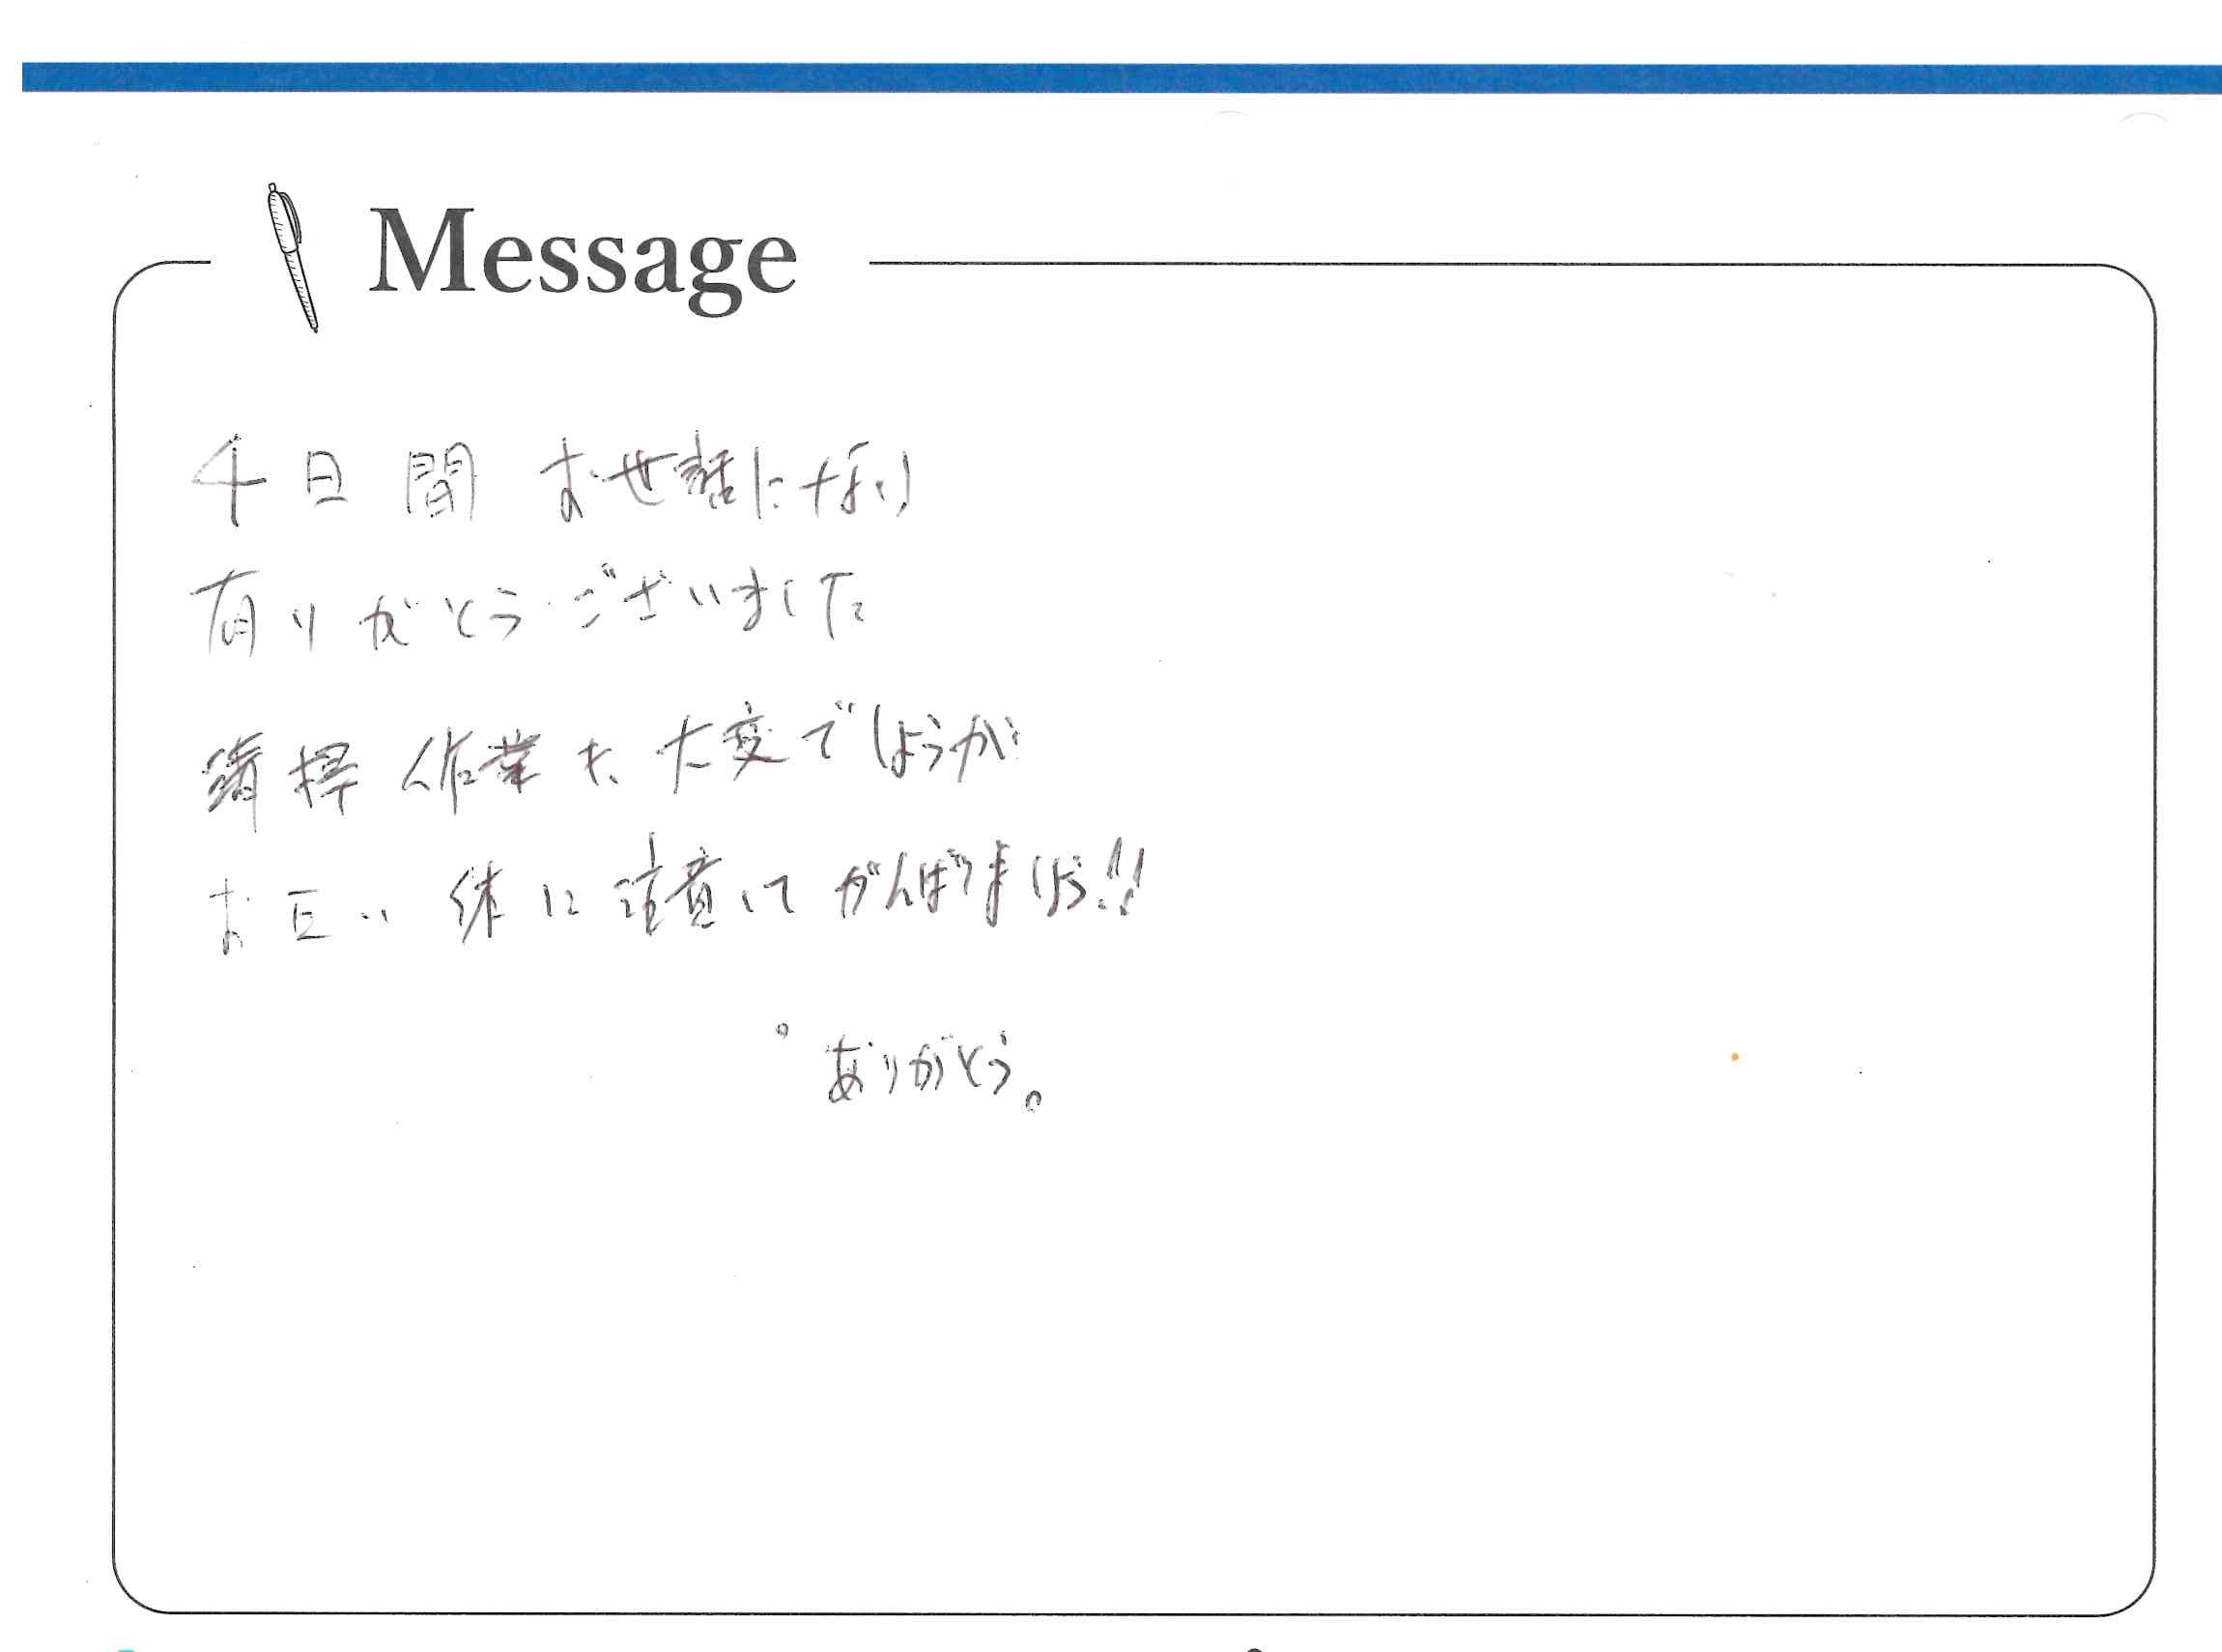 Message
4日間 お世話になり
有りがとうございました
清掃作業も大変でしょうが
お互い 体に注意して がんばりましょう!!
ありがとう。